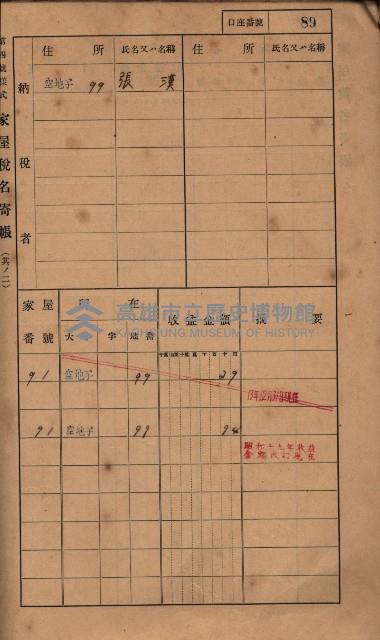 口座番號 89
第四號樣式 家屋稅名寄帳 (其ノ二)
納稅者
住所 氏名又ハ名稱 住所 氏名又ハ名稱
空地子 99 張 漢
家屋番號 所在 收益金額 摘要
大字 地番
91 空地子 99 29
91 空地子 99
昭和十九年收益
金額改訂現在
高雄市立歷史博物館
KAOHSIUNG MUSEUM OF HISTORY